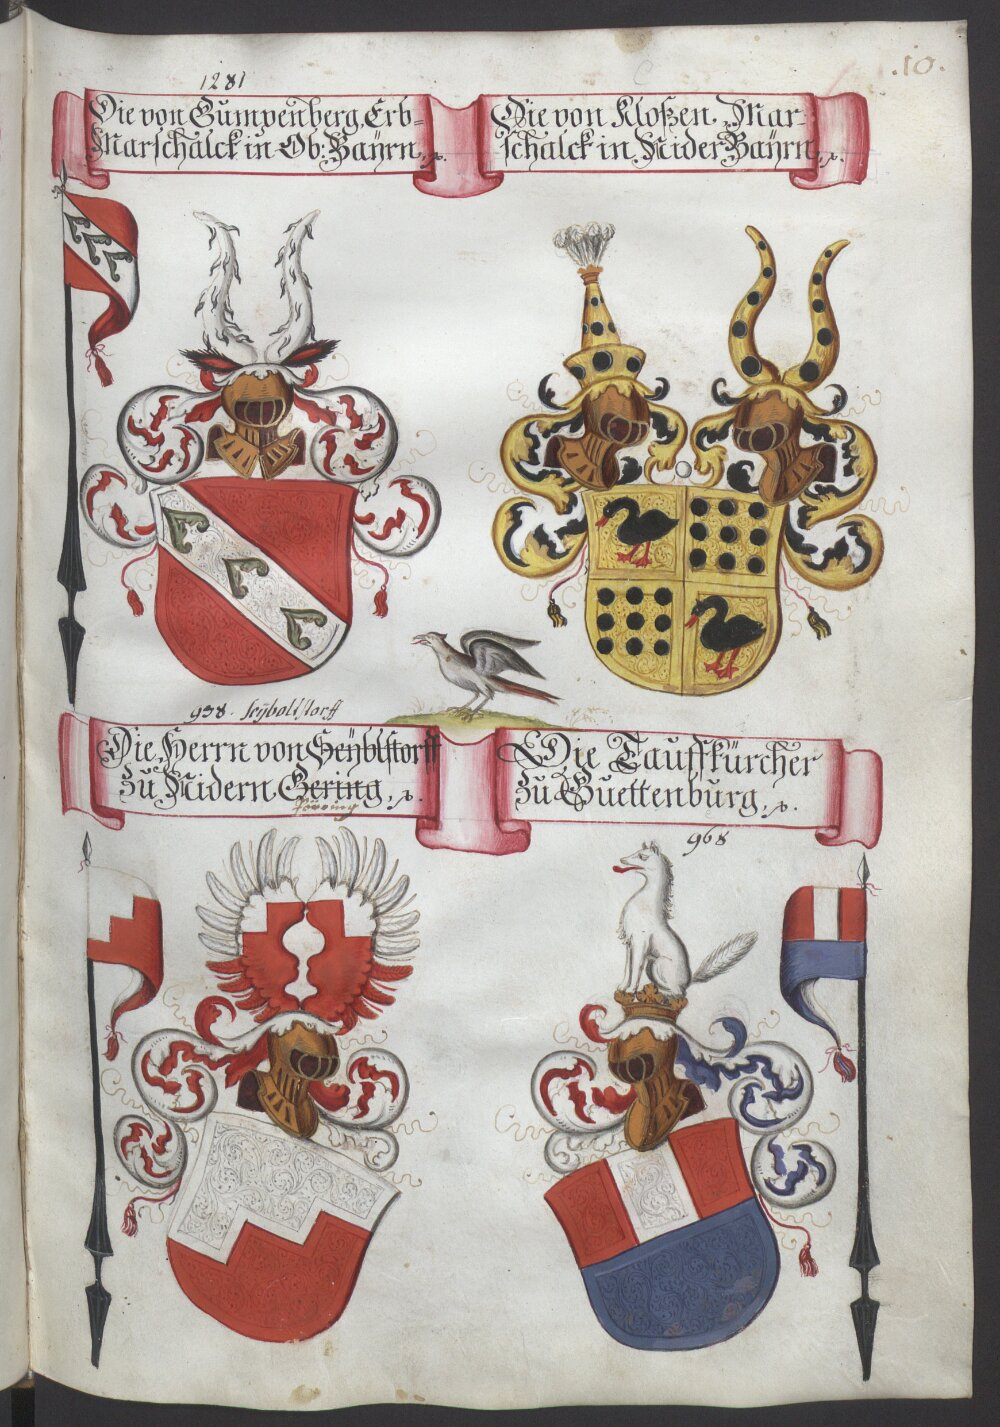 .10.
1281
Die von Gumpenberg, Erb=
Marschalck in Ob: Bayrn, .
Die von Kloßen, Mar=
schalck in Nider Bayrn, .
938. seyboltstorff
Die Herrn von Seyblstorff
zu Nidern Gering, .
Pöring
Die Tauffkürcher
zu Guettenburg, .
968